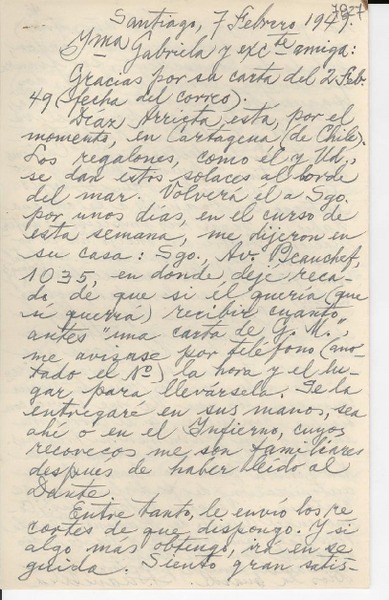 7927
Santiago, 7 Febrero 1949.
Yma Gabriela y excte amiga:
Gracias por su carta del 2 Feb.
49 (fecha del correo).
Díaz Arrieta esta, por el
momento, en Cartagena (de Chile).
Los regalones, como él y Ud.,
se dan estos solaces al borde
del mar. Volverá él a Sgo.
por unos días, en el curso de
esta semana, me dijeron en
su casa: Sgo., Av. Beauchef,
1035, en donde dejé reca-
do de que si él quería (que
si querra) recibir cuanto
antes "una carta de G. M.",
me avizase por teléfono (ano-
tado el Nº) la hora y el lu-
gar para llevársela. Se la
entregaré en sus manos, sea
ahí o en el Infierno, cuyos
recovecos me son familiares
despues de haber leído al
Dante.
Entre tanto, le envío los re
cortes de que dispongo. Y si
algo más obtengo, irá en se
guida. Siento gran satis-